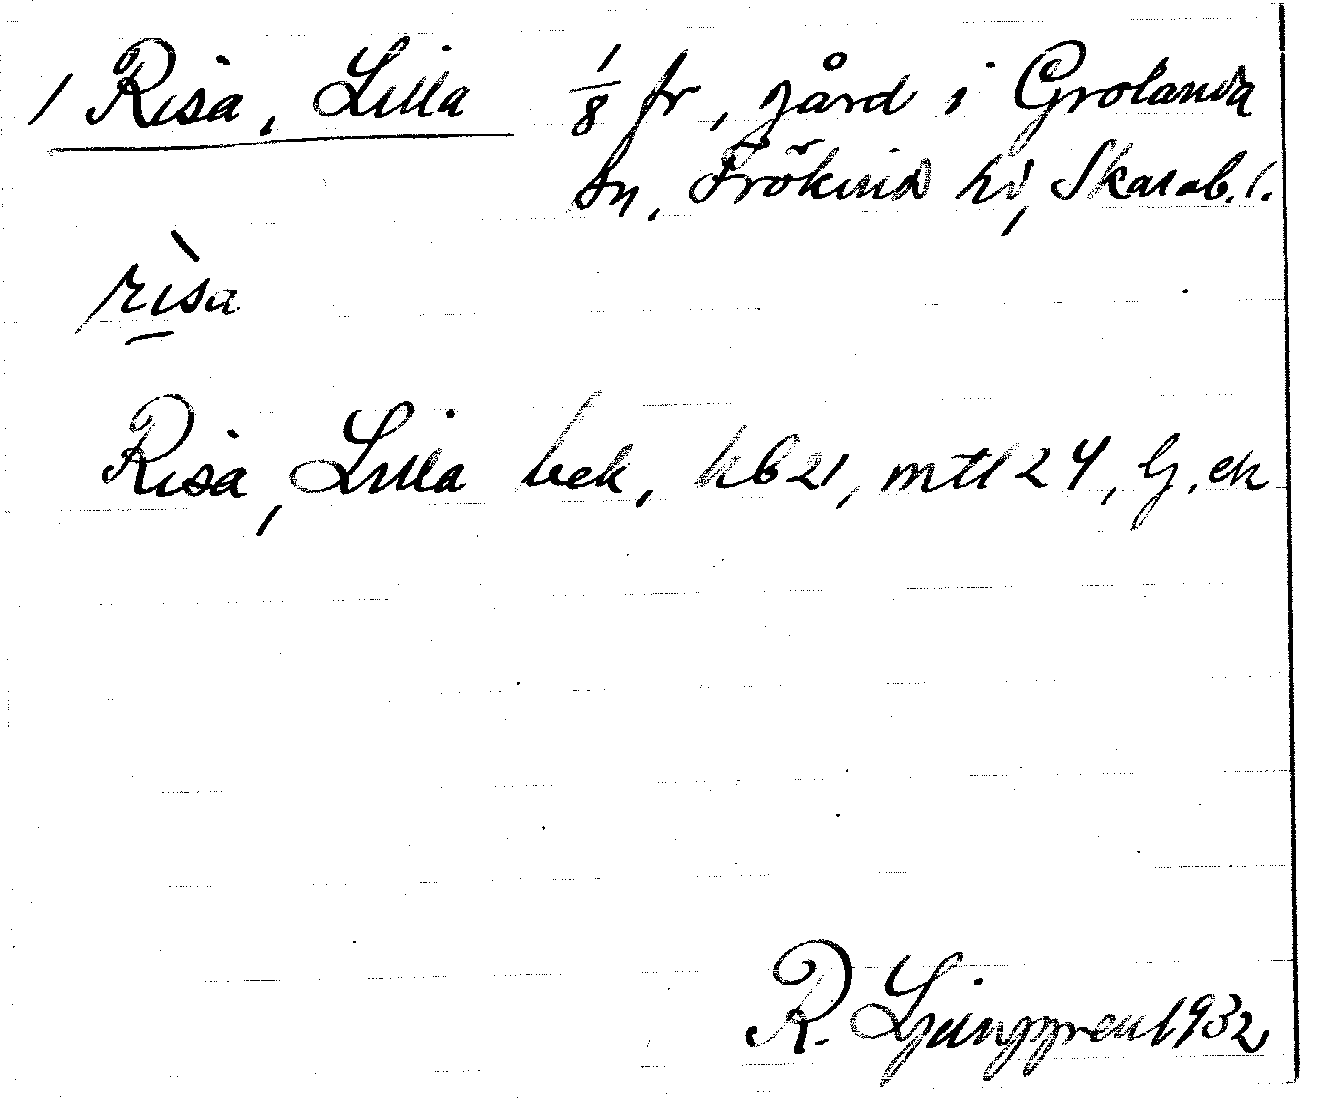 / Risa, Lilla 1/8 fr, gård i Grolanda
sn, Frökind hd, Skarab. l.
rìsa
Risa, Lilla bek, kb 21, mtl 24, G. ek
R. Ljunggren 1932